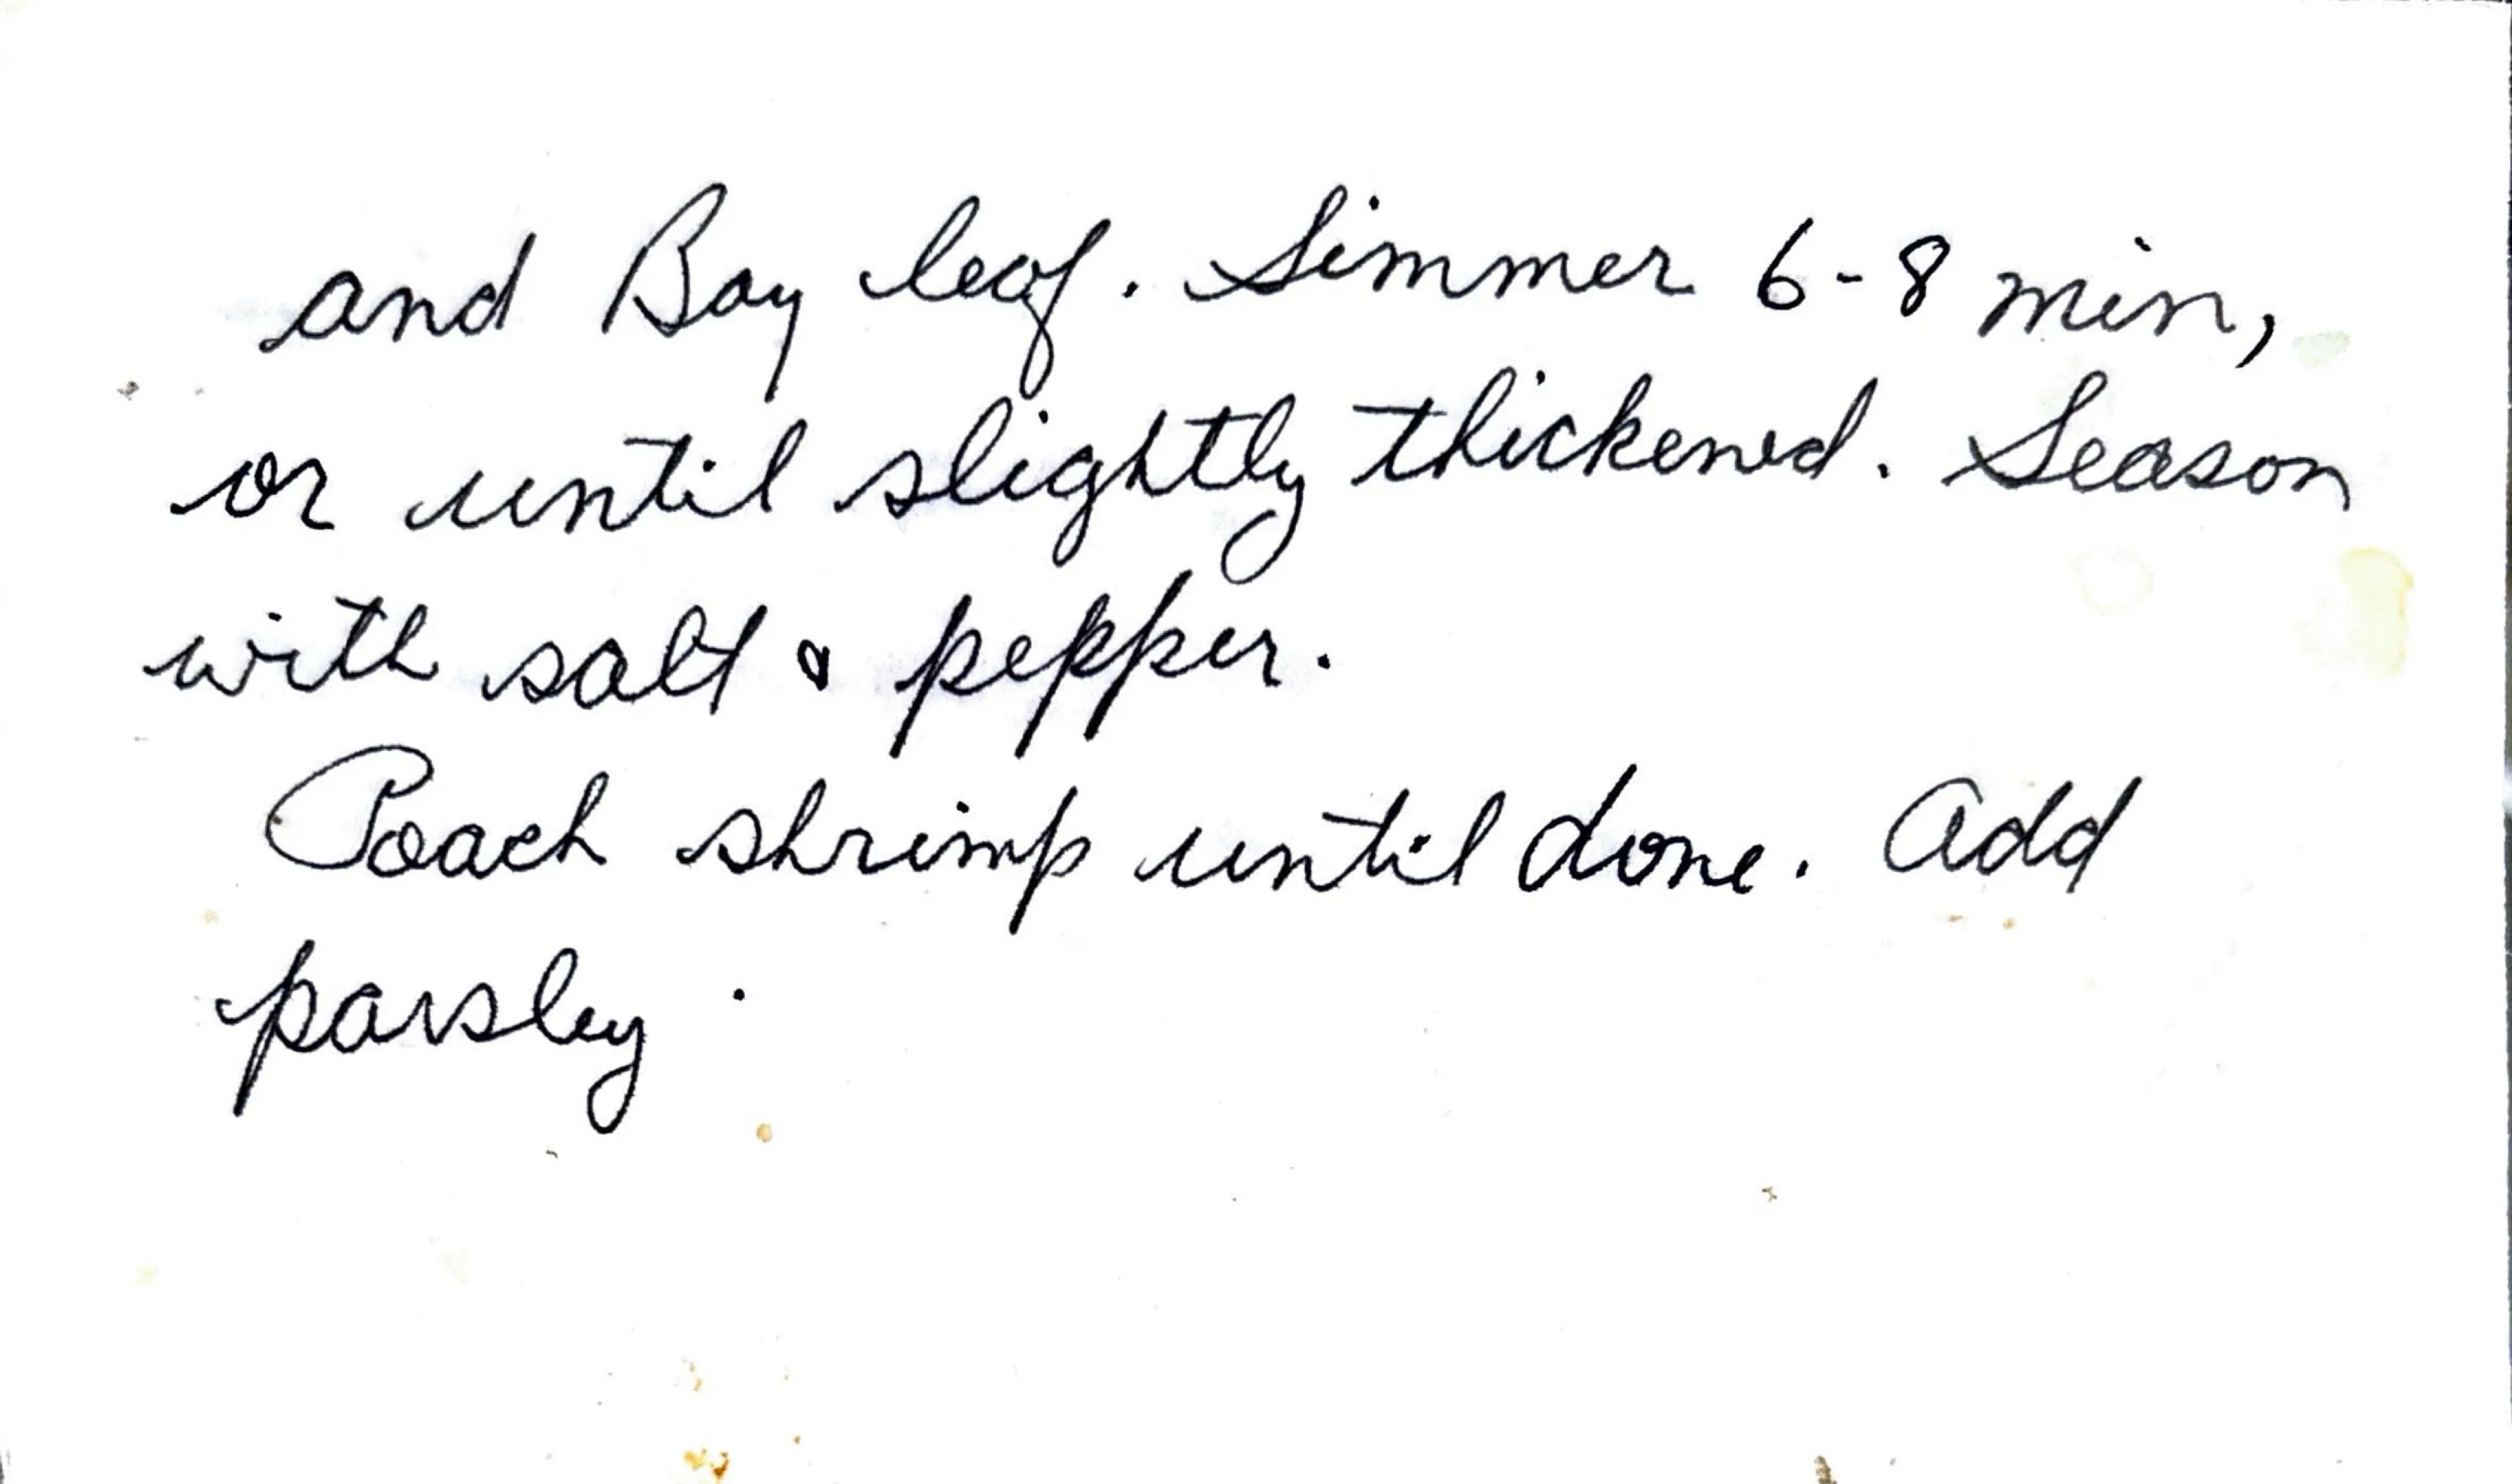 and Bay leaf. Simmer 6-8 min,
or until slightly thickened. Season
with salt & pepper.
Poach shrimp until done. Add
parsley.